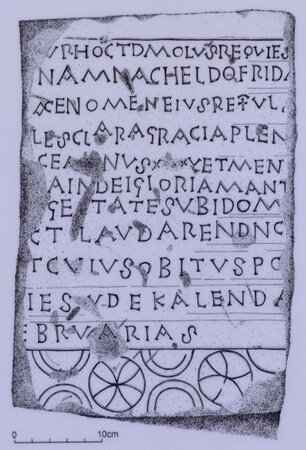 VRHOCTDMOLVSREQVIES
NAMNACHELDOFRIDA
ACENOMENEIVSREFVL
LESCLARAGRACIAPLEN
CEANNVSXXXVETMEN
AINDEIGLORIAMANT
GETATESVBIDOM
CTLAVDARENDNO
TCVLVSOBITVSPO
IESVDEKALENDA
EBRVARIAS
0 10cm